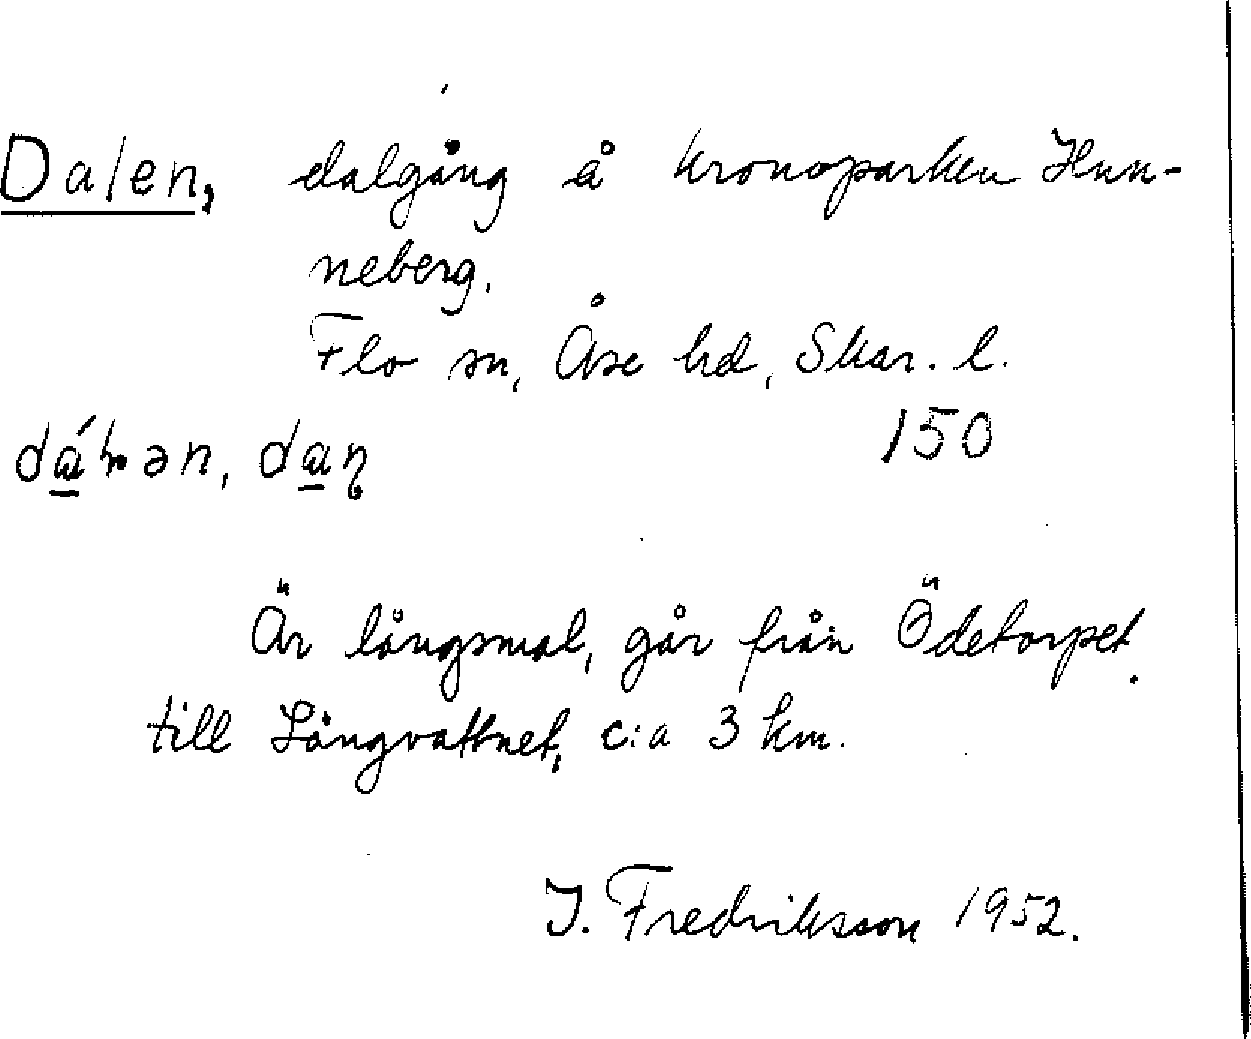 Dalen, dalgång å kronoparken Hun-
neberg.
Flo sn, Åse hd, Skar. l.
150
Är långsmal, går från Ödetorpet
till Långvattnet, c:a 3 km.
J. Fredriksson 1952.